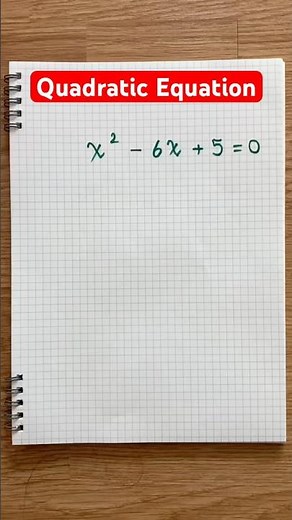 Quadratic Equation
x² - 6x + 5 = 0